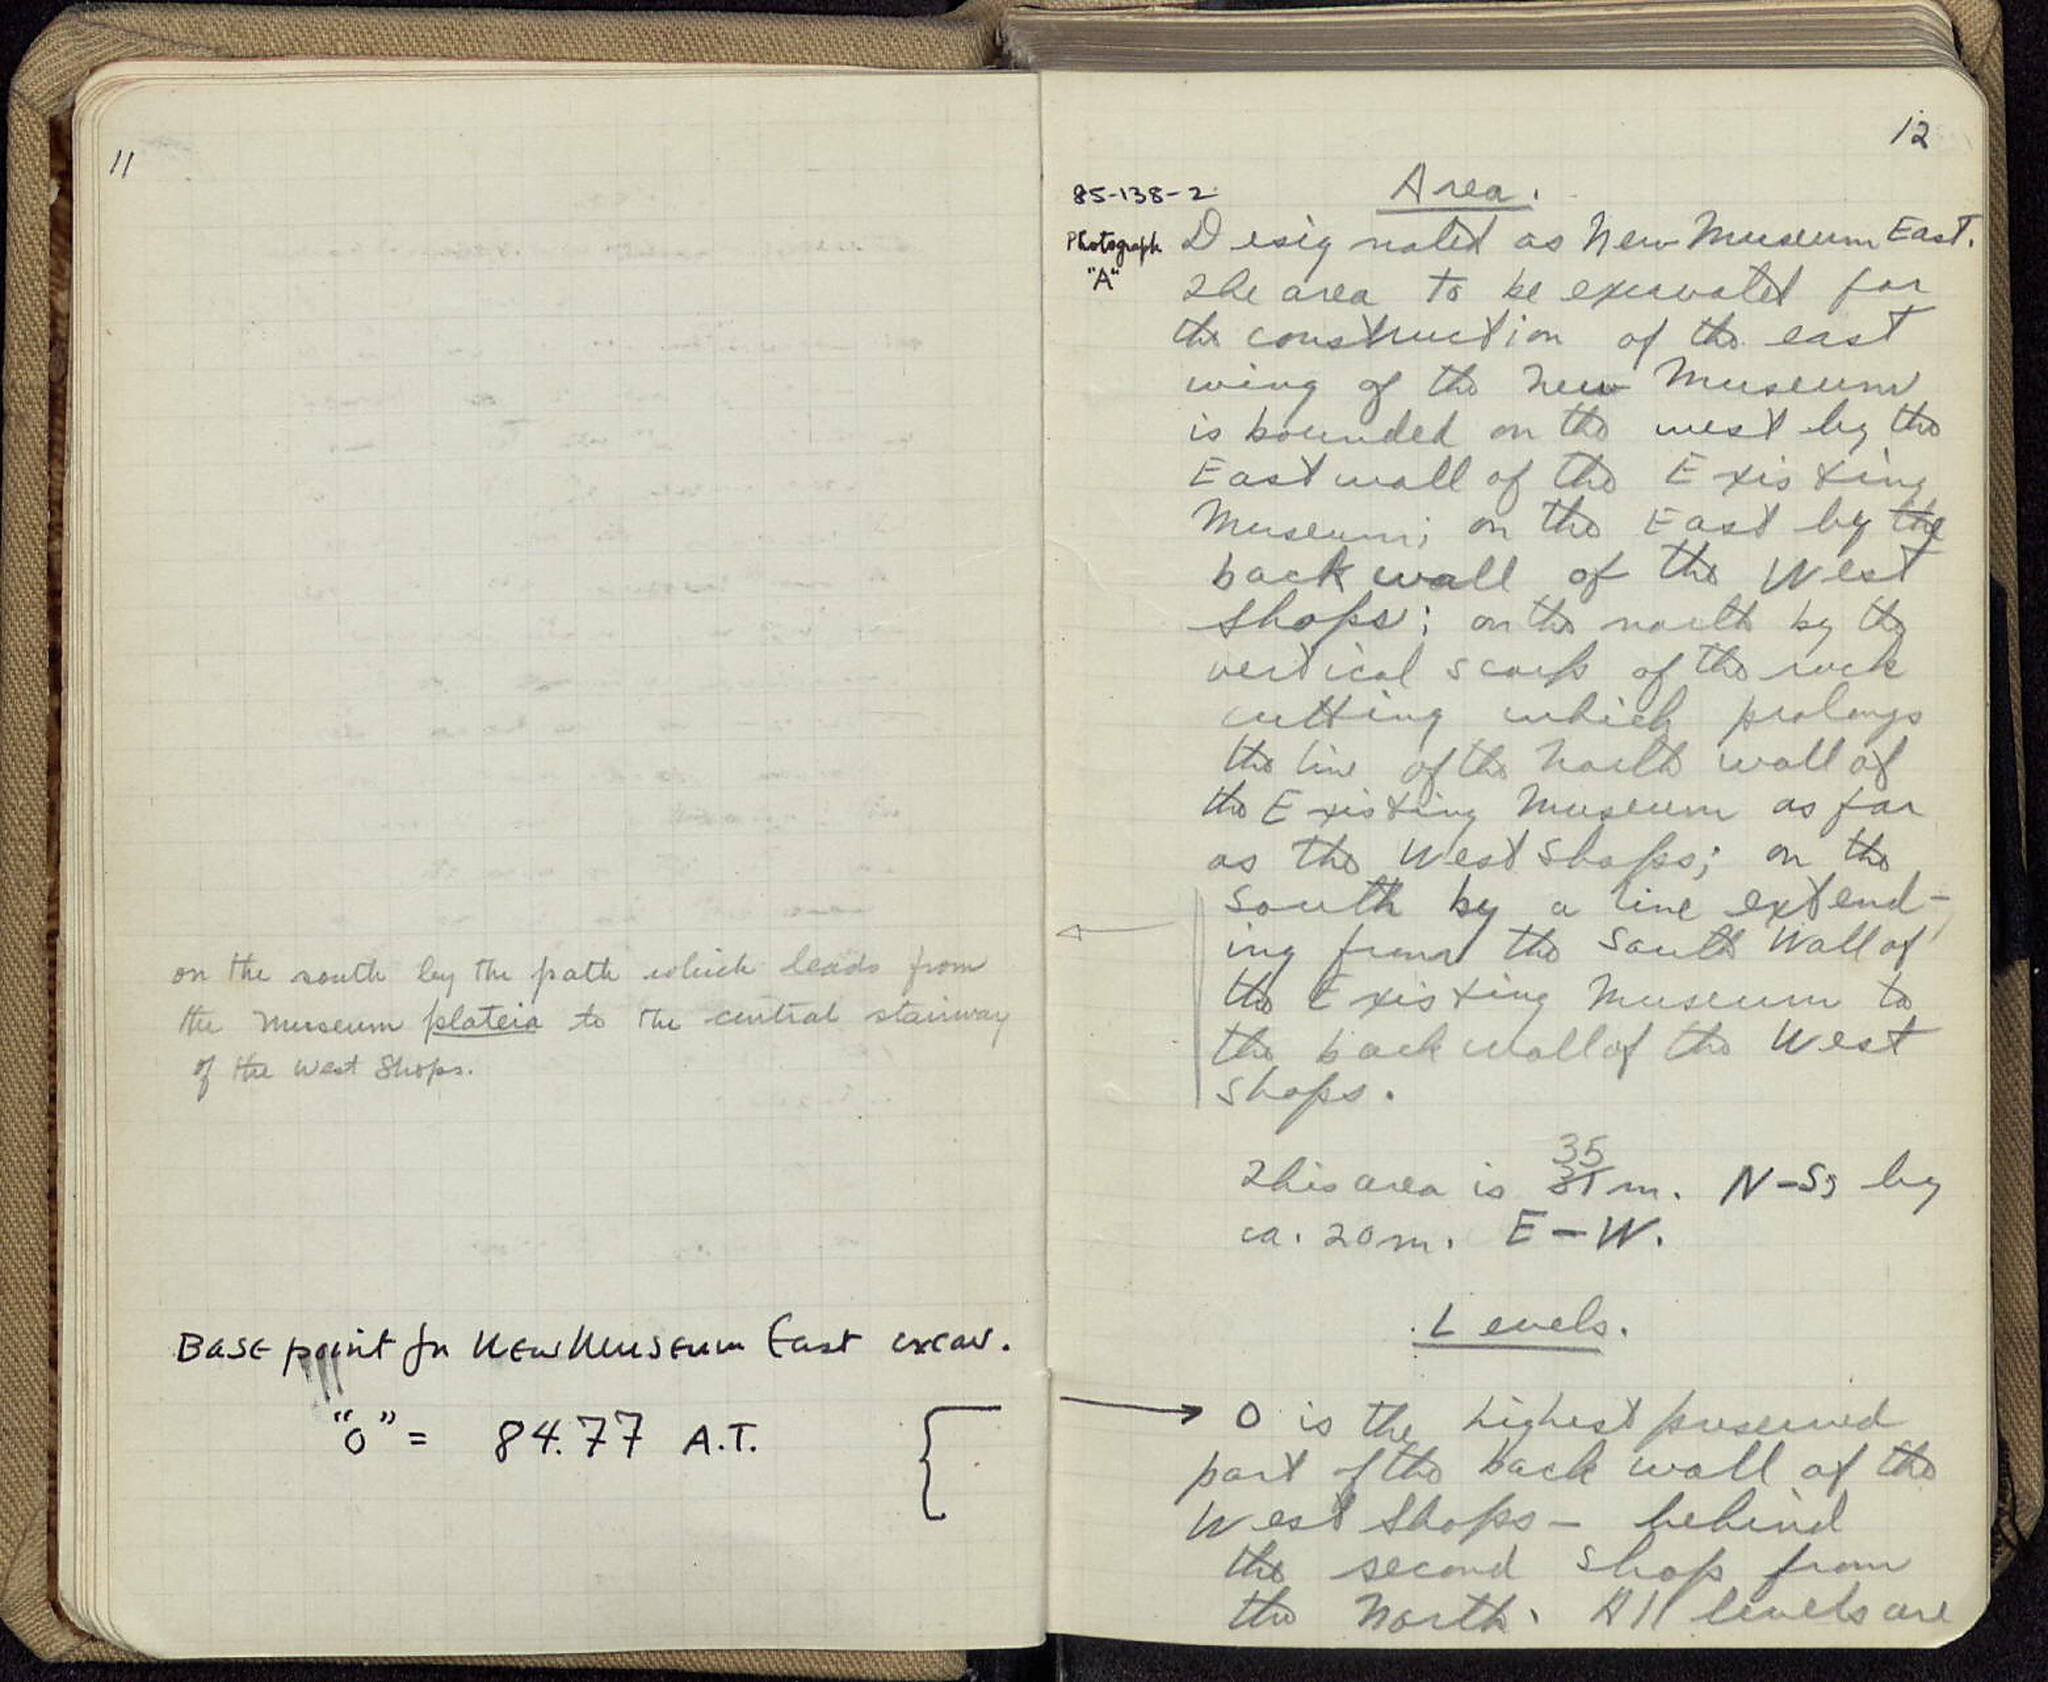 11
on the south by the path which leads from
the Museum plateia to the central stairway
of the West Shops.
Base point for New Museum East excav.
"0" = 84.77 A.T.
12
85-138-2
Photograph
"A"
Area.
Designated as New Museum East.
The area to be excavated for
the construction of the east
wing of the New Museum
is bounded on the west by the
East wall of the Existing
Museum; on the East by the
back wall of the West
Shops; on the north by the
vertical scarp of the rock
cutting which prolongs
the line of the North wall of
the Existing Museum as far
as the West Shops; on the
South by a line extend-
ing from the South Wall of
the Existing Museum to
the back wall of the West
Shops.
35
This area is 31 m. N-S, by
ca. 20 m. E-W.
Levels.
0 is the highest preserved
part of the back wall of the
West Shops - behind
the second shop from
the North. All levels are